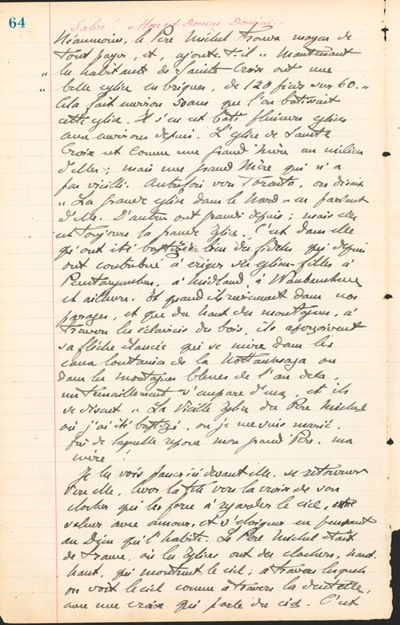 64
Salve! "Haec est Domus Domini."
Néanmoins, le Père Michel trouva moyen de
tout payer, et, ajoute-t-il "Maintenant
" les habitants de Sainte Croix ont une
" belle église en briques, de 120 pieds sur 60."
Cela fait environ 30 ans que l'on bâtissait
cette église. Il s'en est bâti plusieurs églises
aux environs depuis. L'église de Sainte
Croix est comme une grand'mère au milieu
d'elles; mais une grand'Mère qui n'a
pas vieilli. Autrefois vers Toronto, on disait
"La grande église dans le Nord" en parlant
d'elle. D'autres ont grandi depuis; mais elle
est toujours la grande Église. C'est dans elle
qu'ont été baptisés bien des fidèles qui depuis
ont contribué à ériger des églises-filles à
Penetanguishene, à Midland, à Waubaushene
et ailleurs. Et quand ils reviennent dans nos
parages, et que du haut des montagnes, à
travers les éclaircis du bois, ils aperçoivent
sa flèche élancée qui se mire dans les
eaux lointaines de la Nottawasaga ou
dans les montagnes bleues de l'au delà,
un tressaillement s'empare d'eux, et ils
se disent "La vieille église du Père Michel
où j'ai été baptisé, où je me suis marié,
près de laquelle repose mon grand Père, ma
mère!"
Je les vois passer ici devant elle, se retourner
vers elle, lever la tête vers la croix de son
clocher qui les force à regarder le ciel,
saluer avec amour, et s'éloigner en pensant
au Dieu qui l'habite. Le Père Michel était
de France, où les églises ont des clochers, haut,
haut, qui montrent le ciel, à travers lesquels
on voit le ciel comme à travers la dentelle,
avec une croix qui parle du ciel. C'est